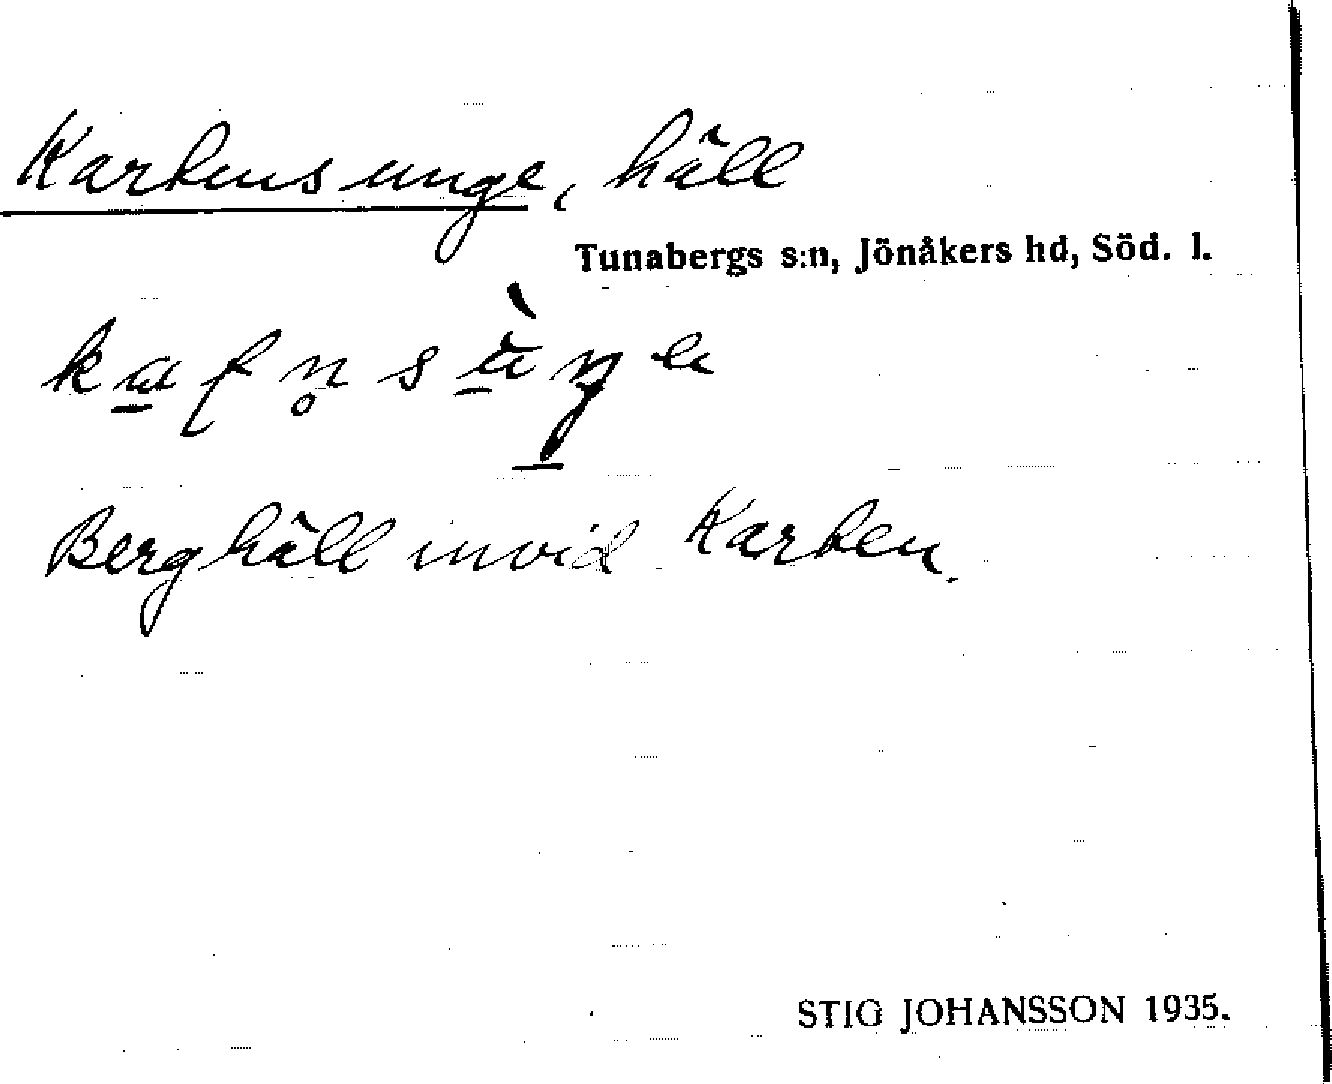 Kartens unge, häll
Tunabergs s:n, Jönåkers hd, Söd. l.
Berghäll invid Karten.
STIG JOHANSSON 1935.